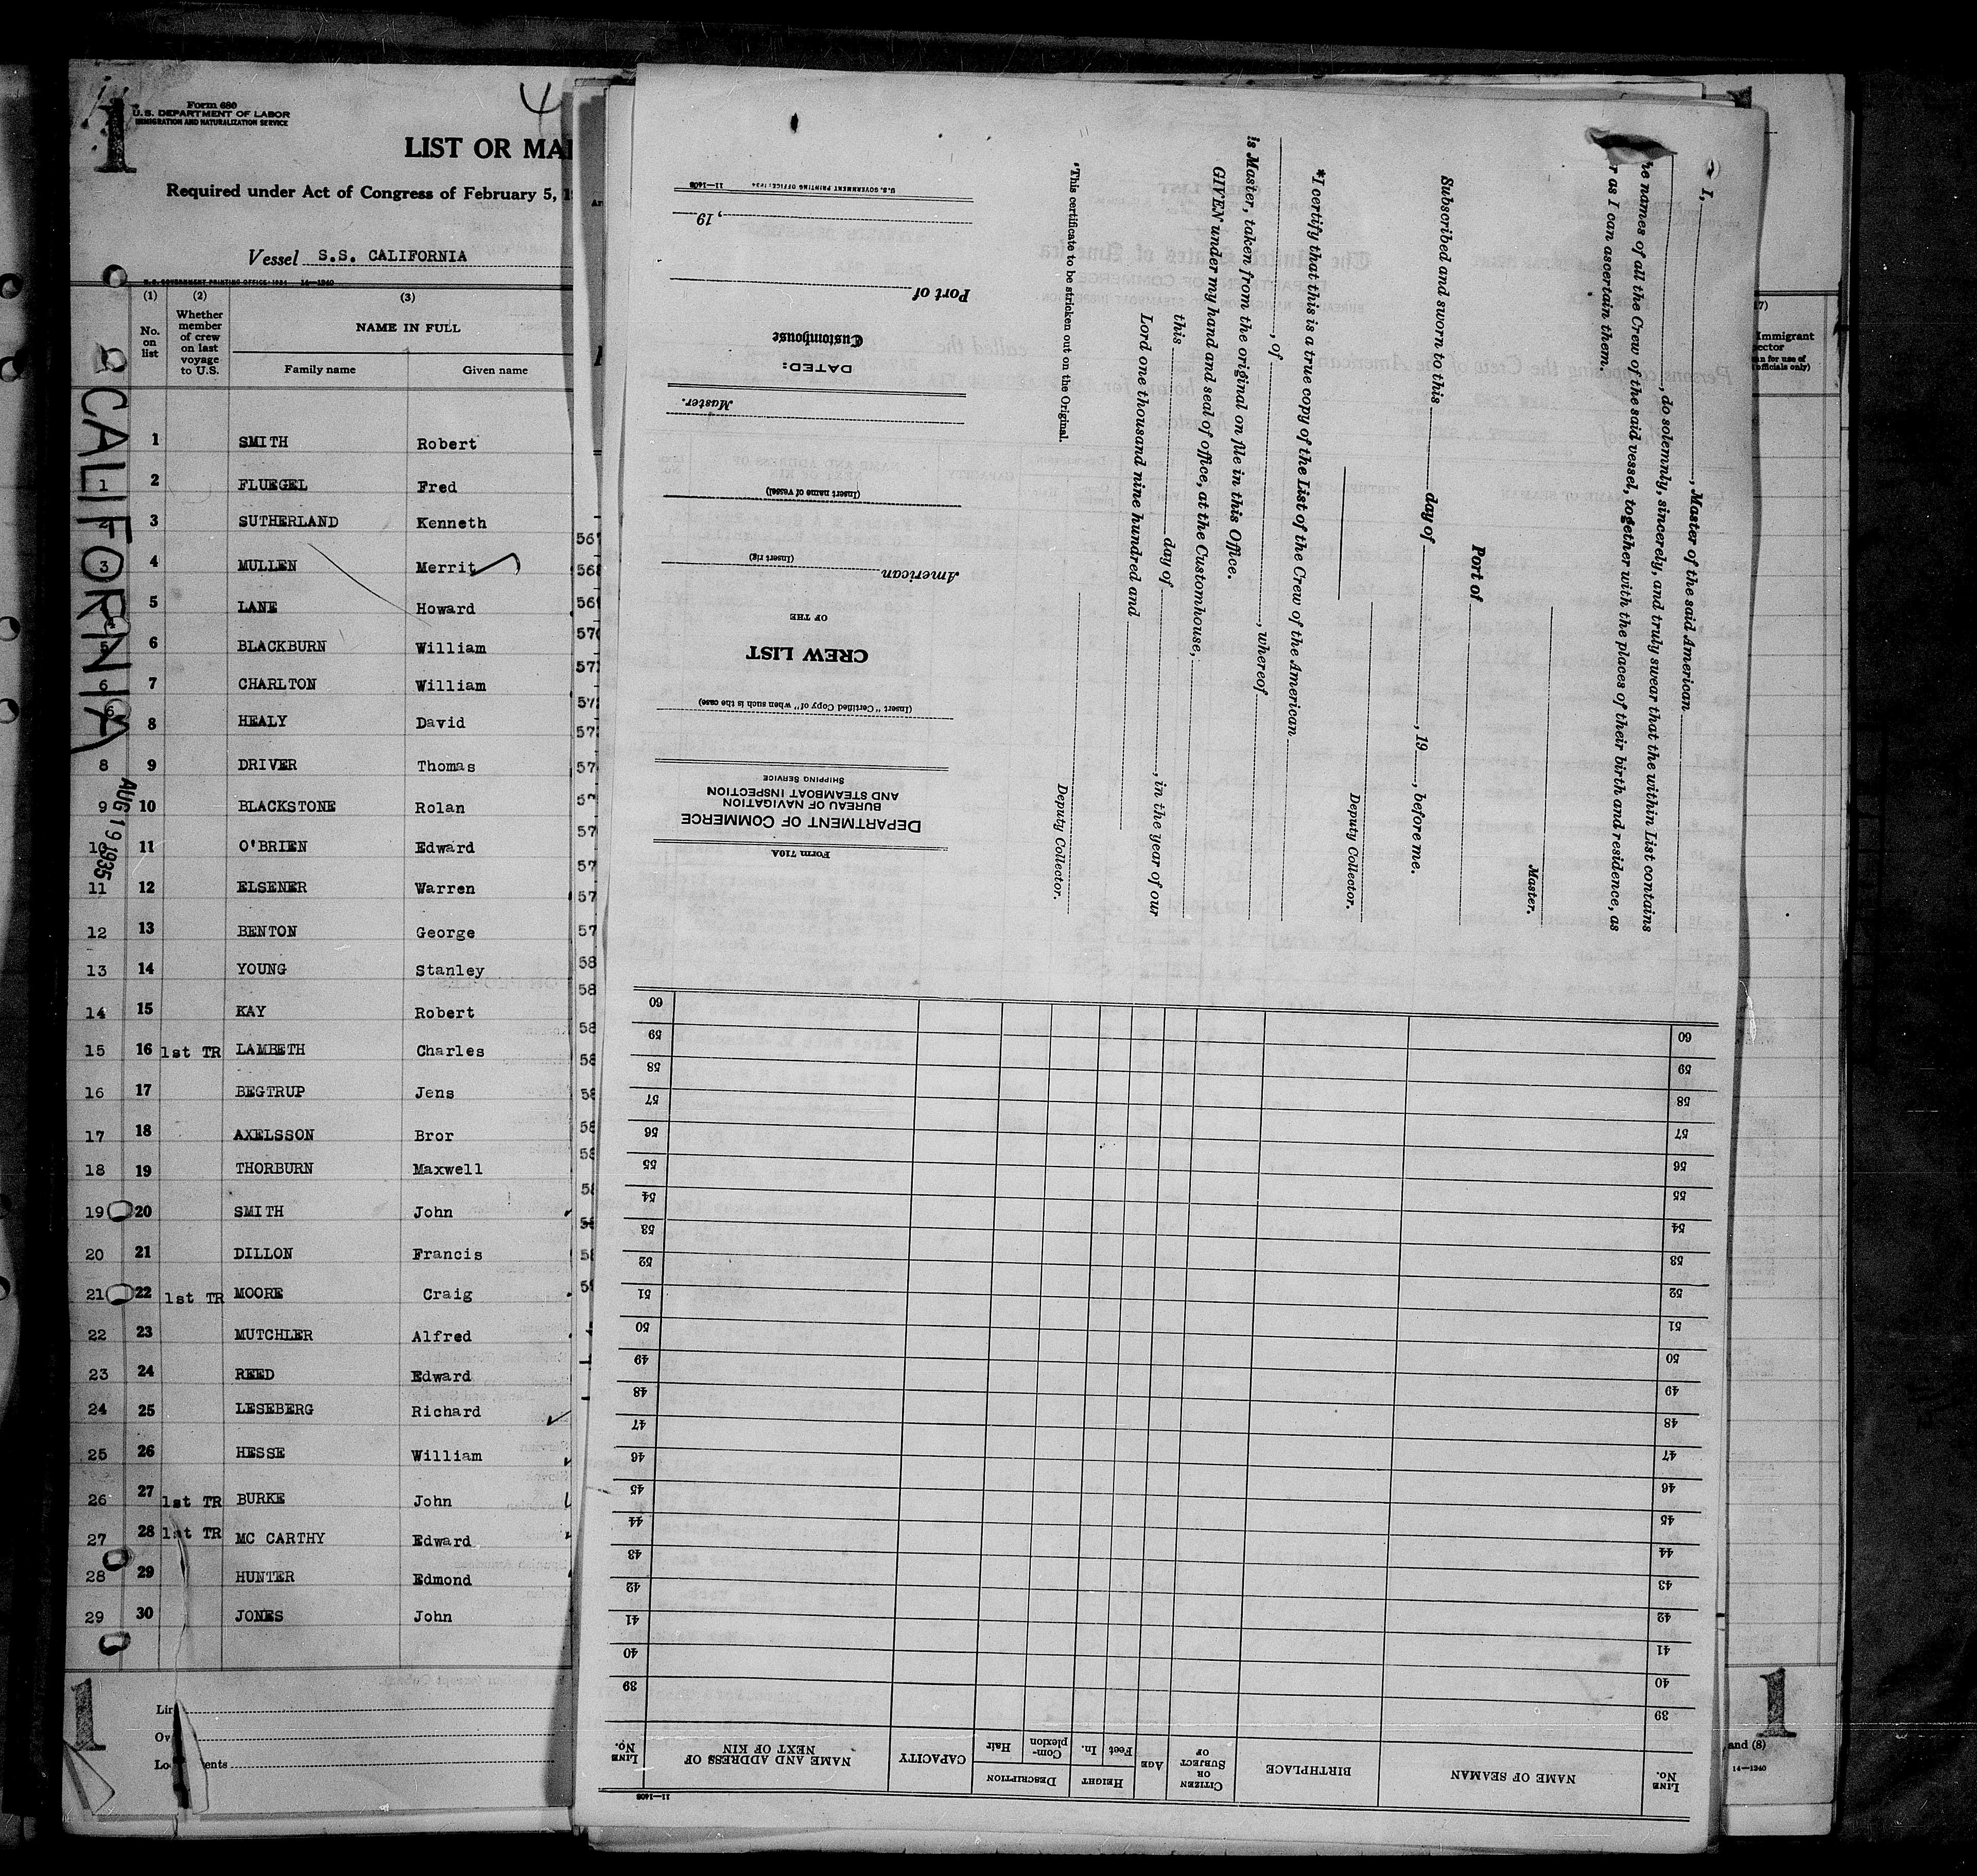 1
Form 680
U.S. DEPARTMENT OF LABOR
IMMIGRATION AND NATURALIZATION SERVICE
4
LIST OR MA
Required under Act of Congress of February 5, 1
Vessel S.S. CALIFORNIA
U.S. GOVERNMENT PRINTING OFFICE: 1934 14—1240
(1) (2) (3)
No. on list
Whether member of crew on last voyage to U.S.
NAME IN FULL
Family name Given name
CALIFORNIA
AUG 19 1935
1 SMITH Robert
1 2 FLUEGEL Fred
2 3 SUTHERLAND Kenneth
3 4 MULLEN Merrit
5 LANE Howard
5 6 BLACKBURN William
6 7 CHARLTON William
8 HEALY David
8 9 DRIVER Thomas
9 10 BLACKSTONE Rolan
10 11 O'BRIEN Edward
11 12 ELSENER Warren
12 13 BENTON George
13 14 YOUNG Stanley
14 15 KAY Robert
15 16 1st TR LAMBETH Charles
16 17 BEGTRUP Jens
17 18 AXELSSON Bror
18 19 THORBURN Maxwell
19 20 SMITH John
20 21 DILLON Francis
21 22 1st TR MOORE Craig
22 23 MUTCHLER Alfred
23 24 REED Edward
24 25 LESEBERG Richard
25 26 HESSE William
26 27 1st TR BURKE John
27 28 1st TR MC CARTHY Edward
28 29 HUNTER Edmond
29 30 JONES John
1
I, , Master of the said American
, do solemnly, sincerely, and truly swear that the within List contains
names of all the Crew of the said vessel, together with the places of their birth and residence, as
r as I can ascertain them.
Master.
Port of
Subscribed and sworn to this day of , 19 , before me.
Deputy Collector.
*I certify that this is a true copy of the List of the Crew of the American
, of , whereof
is Master, taken from the original on file in this Office.
GIVEN under my hand and seal of office, at the Customhouse,
this day of , in the year of our
Lord one thousand nine hundred and
Deputy Collector.
*This certificate to be stricken out on the Original.
Form 710A
DEPARTMENT OF COMMERCE
BUREAU OF NAVIGATION
AND STEAMBOAT INSPECTION
SHIPPING SERVICE
(Insert "Certified Copy of" when such is the case)
CREW LIST
OF THE
American
(Insert rig)
(Insert name of vessel)
Master.
DATED:
Customhouse
Port of
, 19
U.S. GOVERNMENT PRINTING OFFICE: 1934 11—1408
11—1408
LINE No.
NAME OF SEAMAN
BIRTHPLACE
CITIZEN OR SUBJECT OF
AGE
HEIGHT
Feet In.
DESCRIPTION
Complexion Hair
CAPACITY
NAME AND ADDRESS OF NEXT OF KIN
LINE No.
39 39
40 40
41 41
42 42
43 43
44 44
45 45
46 46
47 47
48 48
49 49
50 50
51 51
52 52
53 53
54 54
55 55
56 56
57 57
58 58
59 59
60 60
Immigrant
officials only)
and (8)
14—1240
1